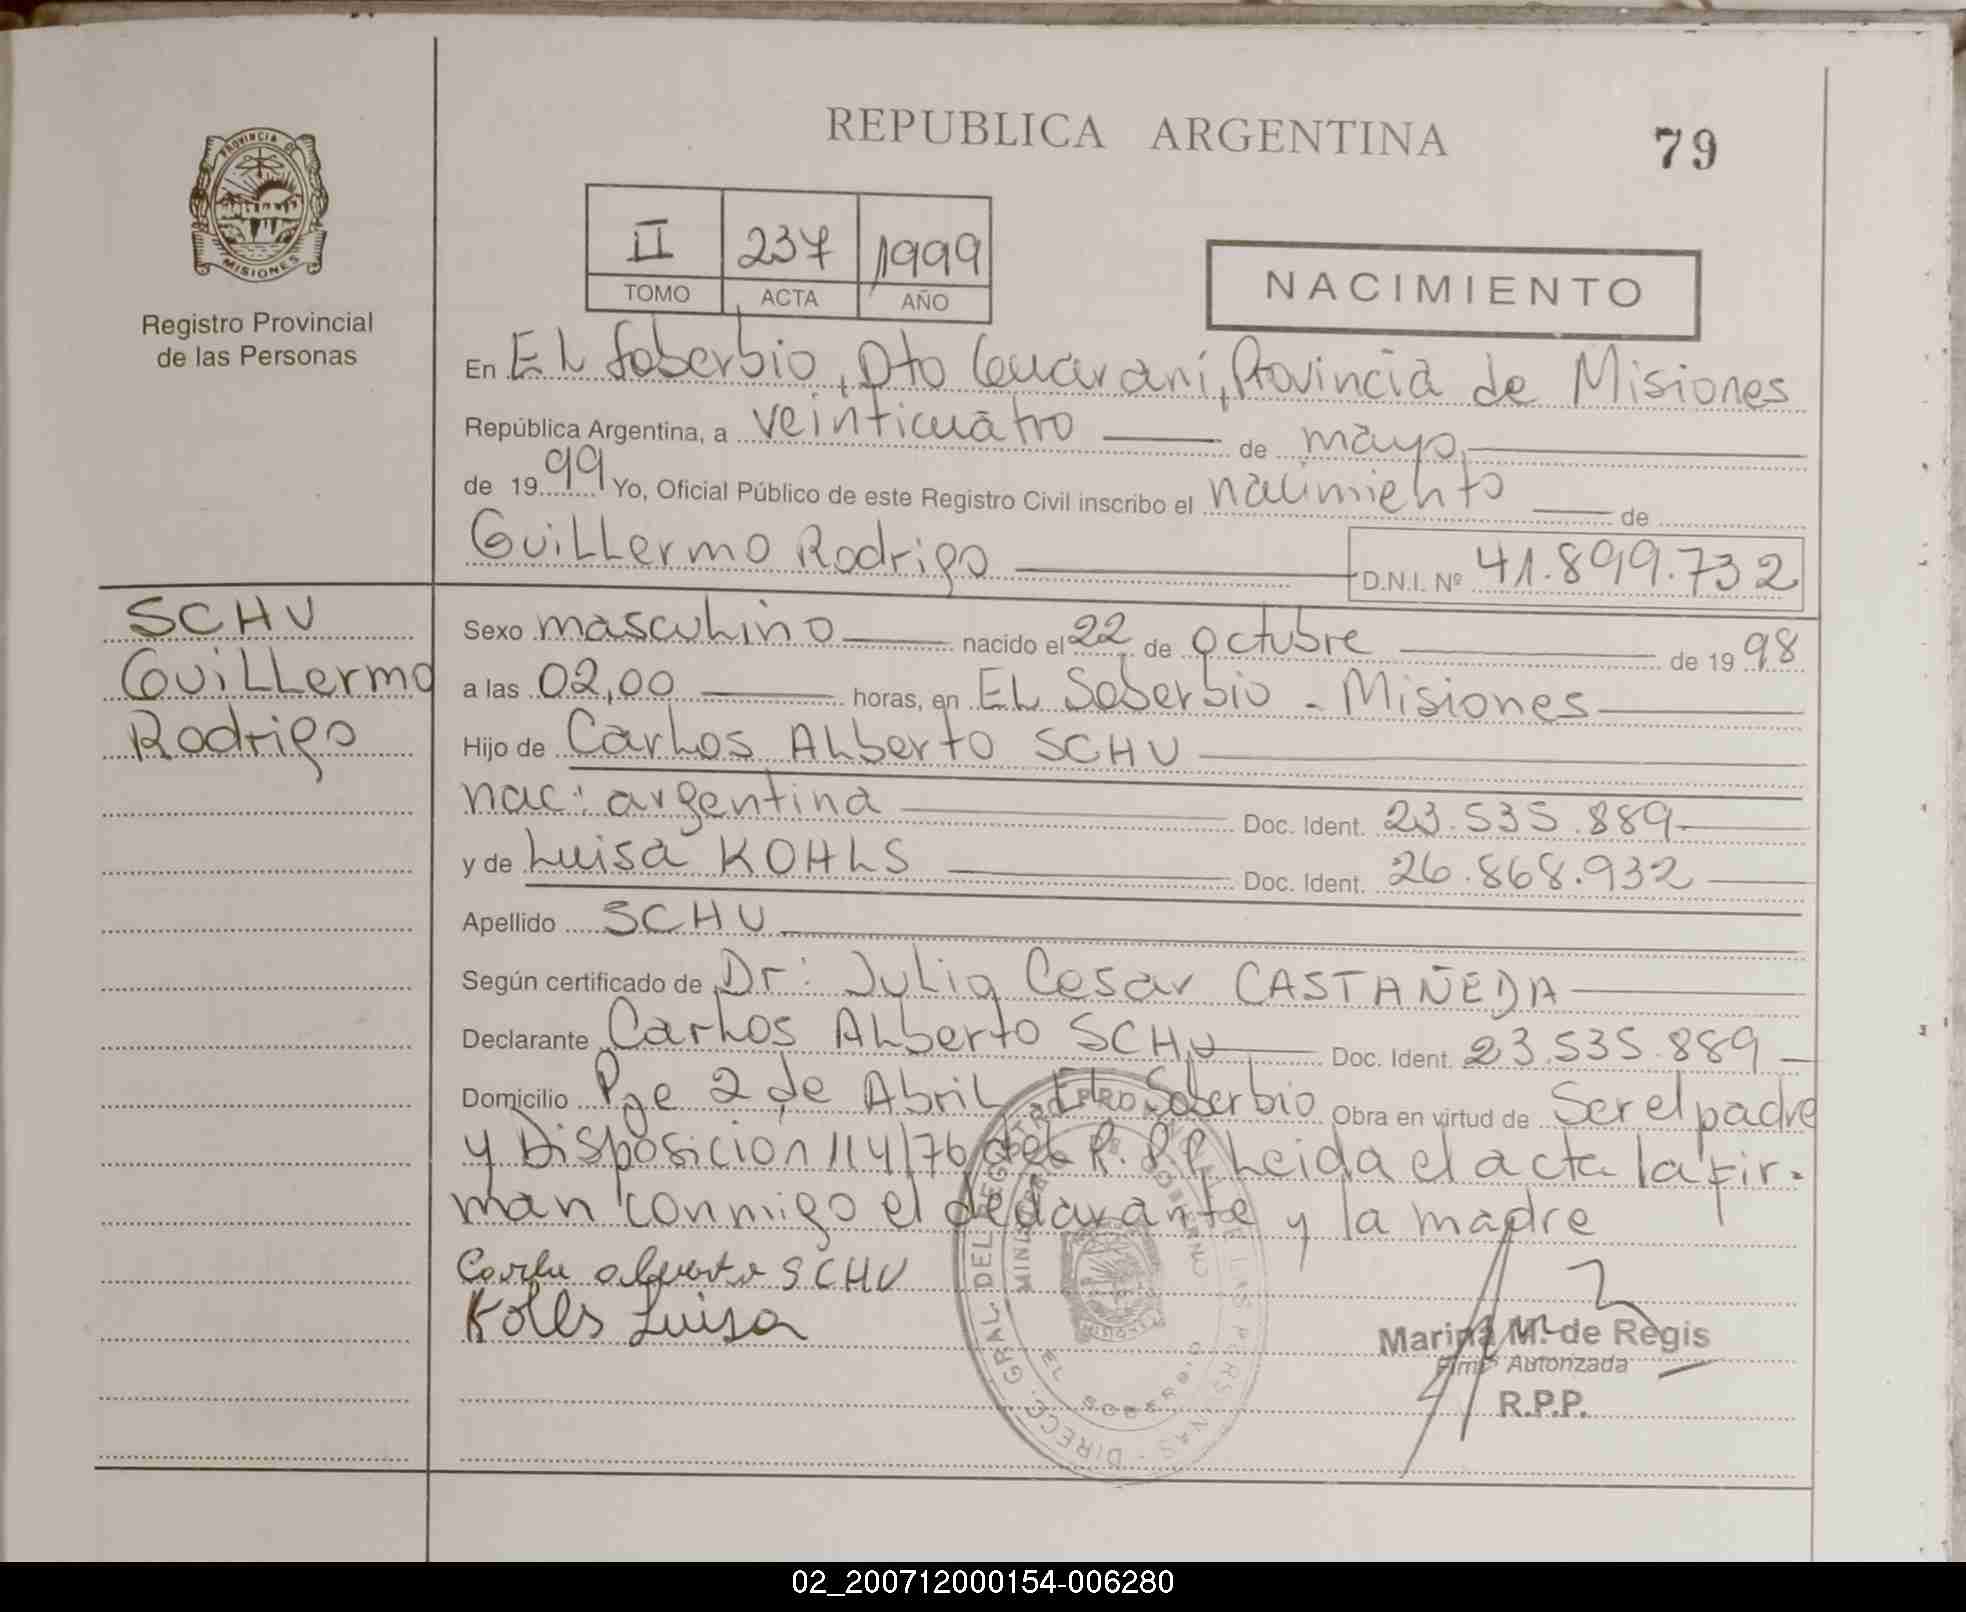 REPUBLICA ARGENTINA
79
PROVINCIA DE
MISIONES
Registro Provincial
de las Personas
II 237 1999
TOMO ACTA AÑO
NACIMIENTO
En EL Soberbio, Dto Guaraní, Provincia de Misiones
República Argentina, a veinticuatro de mayo,
de 1999 Yo, Oficial Público de este Registro Civil inscribo el nacimiento de
Guillermo Rodrigo D.N.I. Nº 41.899.732
SCHU
Guillermo
Rodrigo
Sexo masculino nacido el 22 de octubre de 1998
a las 02,00 horas, en EL Soberbio - Misiones
Hijo de Carlos Alberto SCHU
nac: argentina Doc. Ident. 23.535.889
y de Luisa KOHLS Doc. Ident. 26.868.932
Apellido SCHU
Según certificado de Dr: Julio Cesar CASTAÑEDA
Declarante Carlos Alberto SCHU Doc. Ident. 23.535.889
Domicilio Pje 2 de Abril El Soberbio Obra en virtud de Ser el padre
y Disposicion 114/76 del R.P.P. Leida el acta la fir-
man conmigo el declarante y la madre
Carlos alberto SCHU
Kolls Luisa
Marina M. de Regis
Firma Autorizada
R.P.P.
02_200712000154-006280